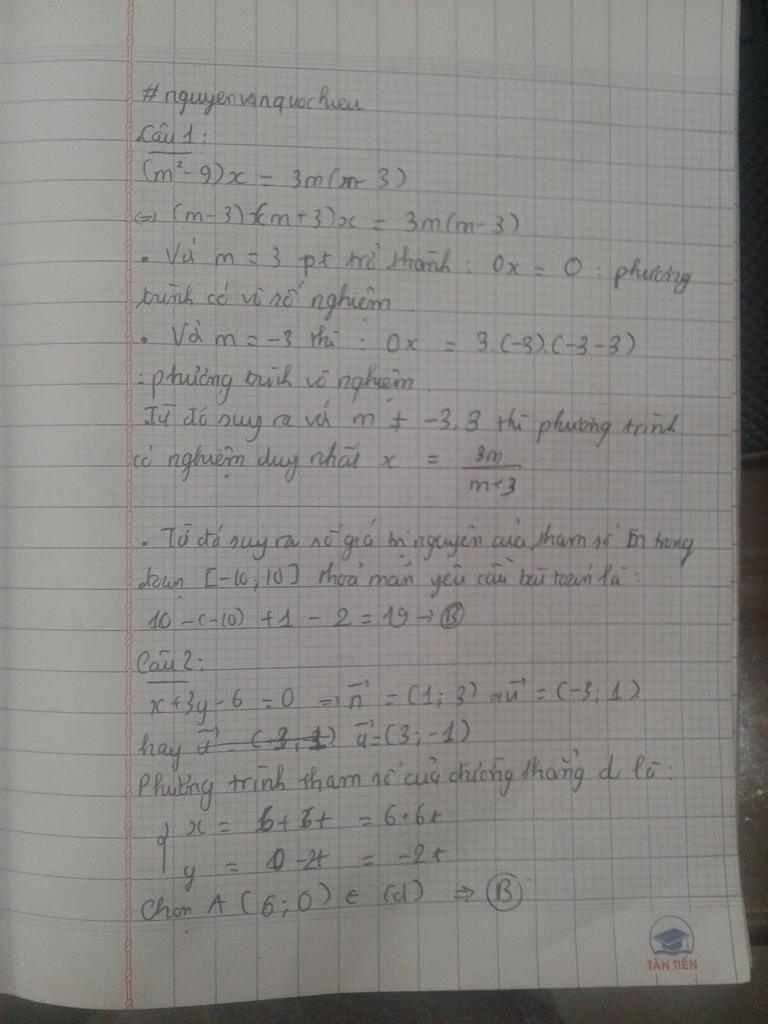 #nguyenvanquochieu
Câu 1:
(m²-9)x = 3m(m-3)
⇔ (m-3)(m+3)x = 3m(m-3)
• Với m = 3 pt trở thành : 0x = 0 : phương
trình có vô số nghiệm
• Với m = -3 thì : 0x = 3.(-3).(-3-3)
: phương trình vô nghiệm.
Từ đó suy ra với m ≠ -3, 3 thì phương trình
có nghiệm duy nhất x = 3m/(m+3)
• Từ đó suy ra số giá trị nguyên của tham số m trong
đoạn [-10; 10] thoả mãn yêu cầu bài toán là :
10 -(-10) + 1 - 2 = 19 → B
Câu 2:
x+3y-6 = 0 ⇒ n⃗ = (1; 3) ⇒ u⃗ = (-3; 1)
hay u⃗ = (3; -1)
Phương trình tham số của đường thẳng d là:
{ x = 6+6t = 6+6t
y = 0-2t = -2t
Chọn A (6; 0) ∈ (d) ⇒ B
TÂN TIẾN